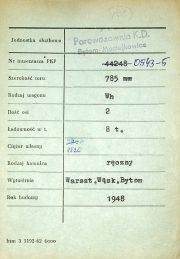 Jednostka służbowa
Parowozownia K.D.
Bytom-Maciejkowice
Nr inwentarza PKP 44248 0543-5
Szerokość toru 785 mm
Rodzaj wagonu Wh
Ilość osi 2
Ładowność w t. 8 t.
Ciężar własny
Rodzaj hamulca ręczny
Wytwórnia Warszt.Wąsk.Bytom
Rok budowy 1948